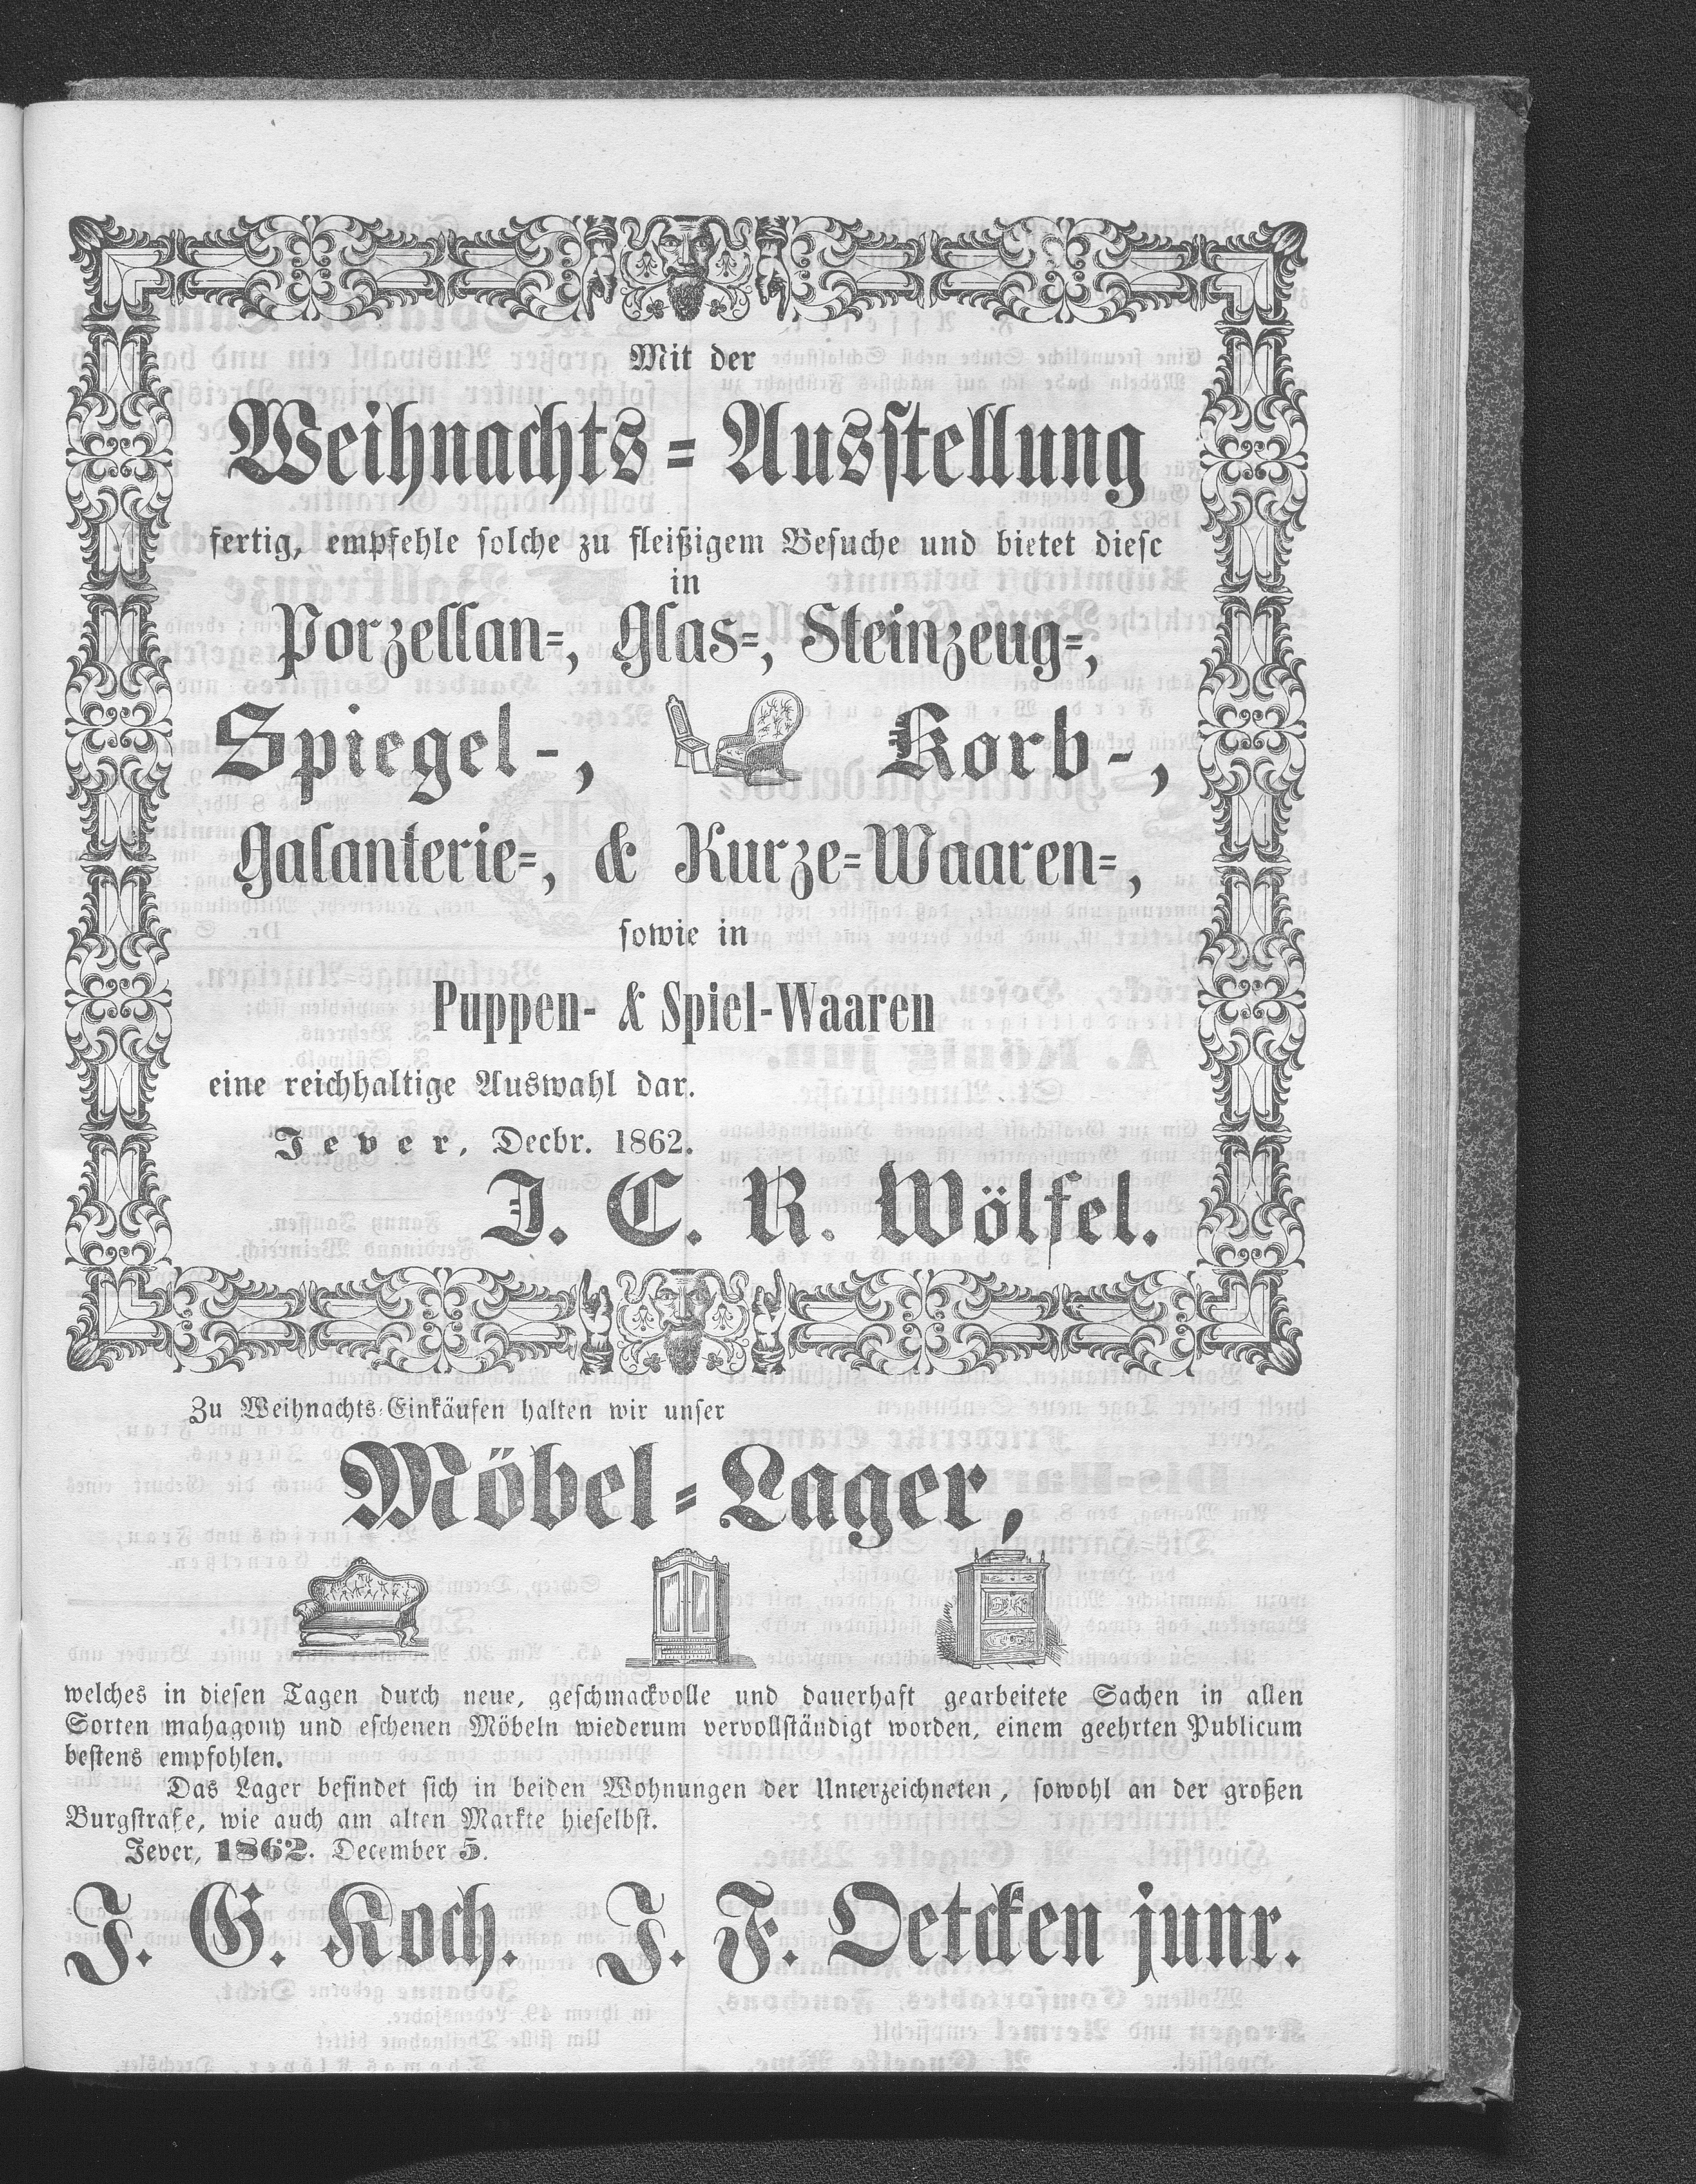 Mit der
Weihnachts-Ausstellung
fertig, empfehle solche zu fleißigem Besuche und bietet diese
in
Porzellan-, Glas-, Steinzeug-,
Spiegel-, Korb-,
Galanterie-, & Kurze-Waaren-,
sowie in
Puppen- & Spiel-Waaren
eine reichhaltige Auswahl dar.
Jever, Decbr. 1862.
J. C. R. Wölfel.
Zu Weihnachts-Einkäufen halten wir unser
Möbel-Lager,
welches in diesen Tagen durch neue, geschmackvolle und dauerhaft gearbeitete Sachen in allen
Sorten mahagony und eschenen Möbeln wiederum vervollständigt worden, einem geehrten Publicum
bestens empfohlen.
Das Lager befindet sich in beiden Wohnungen der Unterzeichneten, sowohl an der großen
Burgstraße, wie auch am alten Markte hieselbst.
Jever, 1862. December 5.
J. G. Koch. J. F. Oetcken junr.